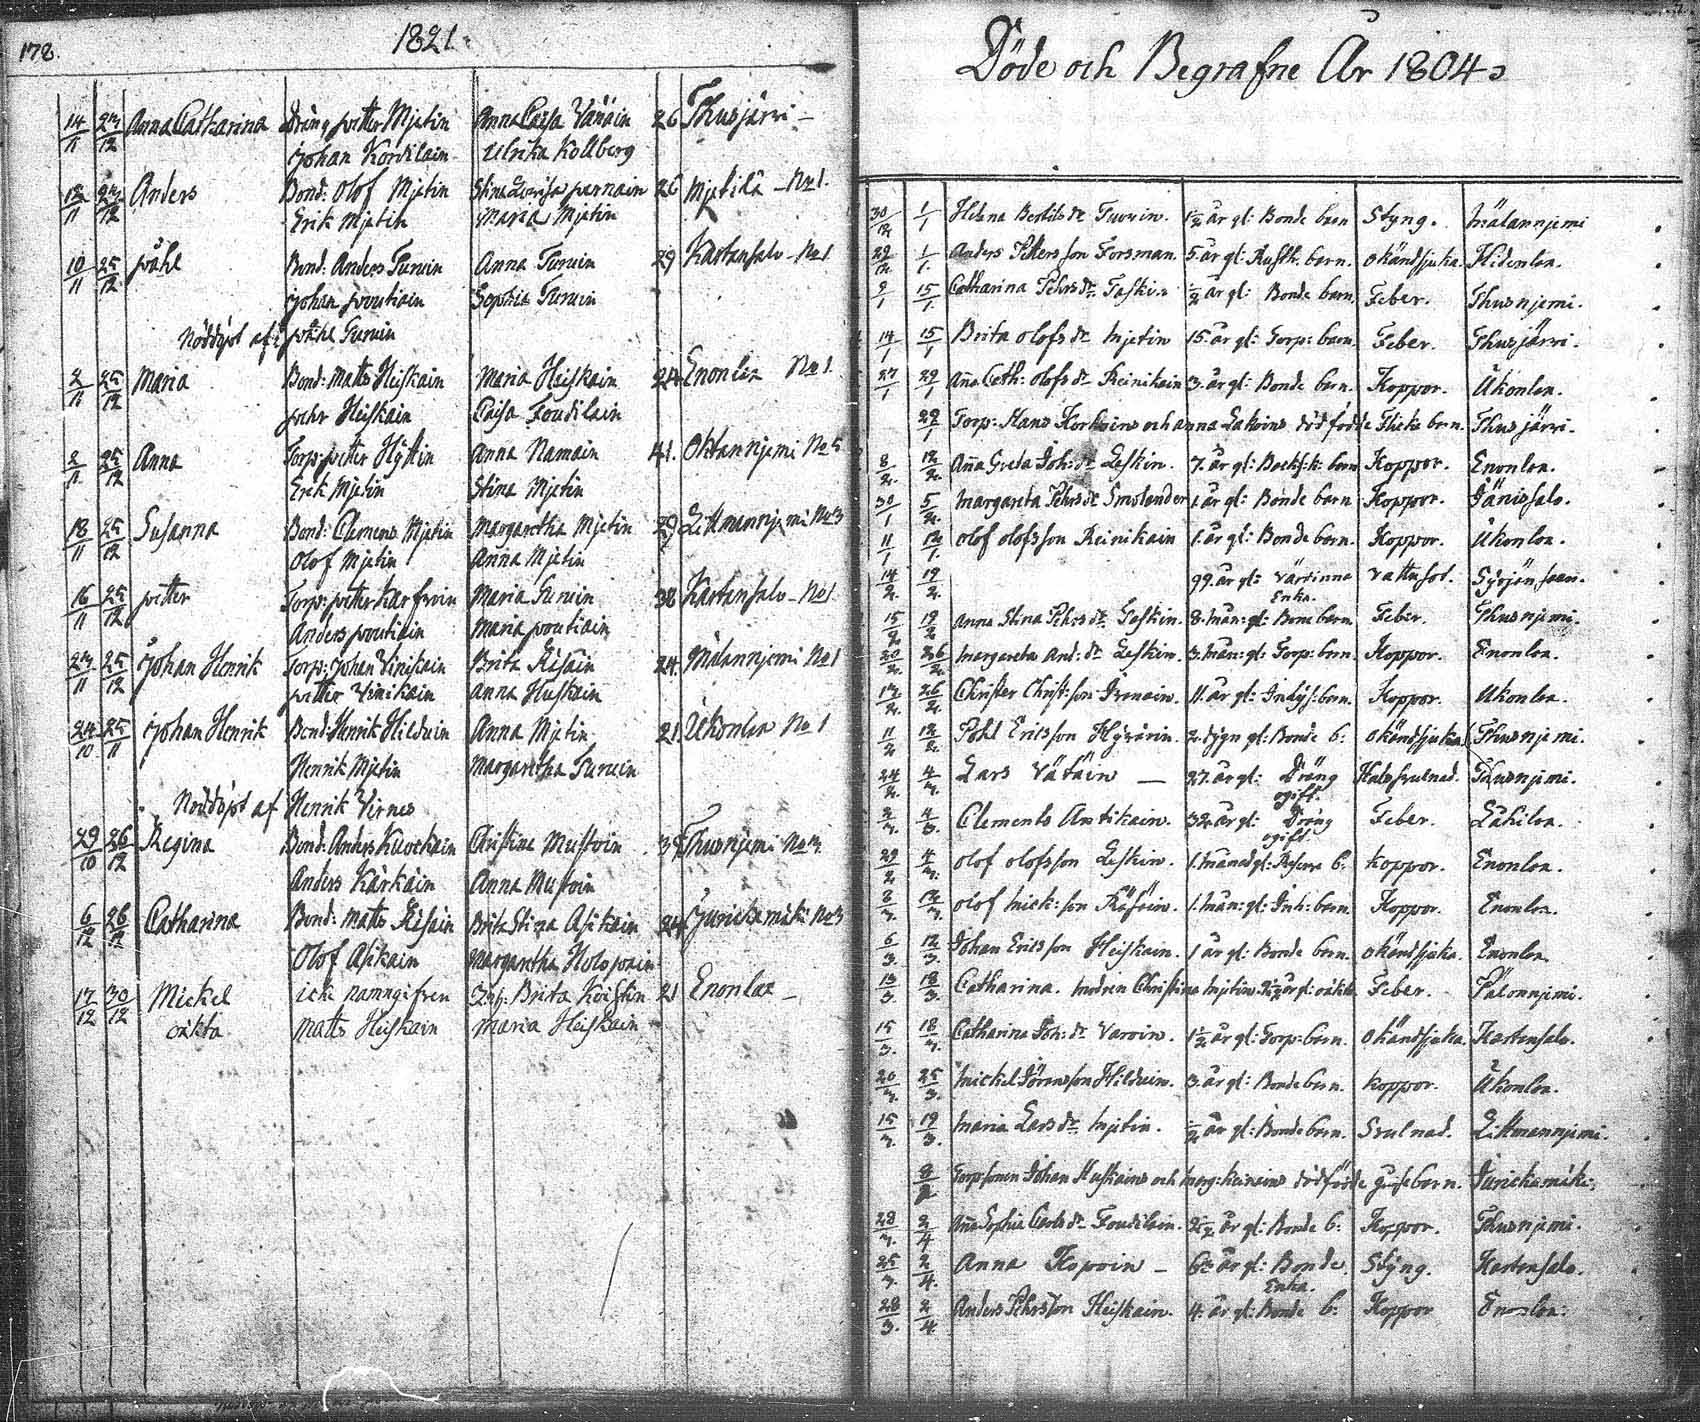 178. 1821.
14/11 27/12 Anna Catharina Dräng petter Mjetin Anna Caisa Vänäin 26 Thusjärvi –
Johan Kordilain Ulrika Kollberg
12/11 27/12 Anders Bond: Olof Mjetin Stina Lovisa parnain 26 Mjetilä – No 1.
Erik Mjetin Maria Mjetin
10/11 25/12 påhl Bond: Anders Turuin Anna Turuin 29 Kartansalo – No 1
Johan poutiain Sophia Turuin
Nöddöpt af påhl Turuin
2/11 25/12 Maria Bond: Matts Heiskain Maria Heiskain 24 Enonlax No 1.
pehr Heiskain Caisa Foudilain
2/11 25/12 Anna Torp: petter Hyttin Anna Namain 41. Oktannjemi No 5
Erik Mjetin Stina Mjetin
18/11 25/12 Susanna Bond: Clemens Mjetin Margaretha Mjetin 29 Littmannjemi No 3
Olof Mjetin Anna Mjetin
16/11 25/12 petter Torp: petter Karfvin Maria Turuin 38 Kartansalo – No 1
Anders poutiain Maria poutiain
27/11 25/12 Johan Henrik Torp: Johan Vinikain Brita Räsäin 24. Mälannjemi No 1
petter Vinikain Anna Huskain
24/10 25/11 Johan Henrik Bond: Henrik Hilduin Anna Mjetin 21. Ukonlax No 1
Henrik Mjetin Margaretha Turuin
Nöddöpt af Henrik Virnes
29/10 26/12 Regina Bond: Anders Kuockain Christina Mustoin 35 Thusnjemi No 3.
Anders Kärkäin Anna Mustoin
6/12 26/12 Catharina Bond: Matts Räsäin Brita Stina Asikain 24 Jurickamäki No 3
Olof Asikain Margaretha Holopain
17/12 30/12 Mickel icke namngifven Inh: Brita Koistin 21 Enonlax –
oäkta Matts Heiskain Maria Heiskain
Döde och Begrafne År 1804
30/12 1/1 Helena Bertils dr Turuin. 1½ år gl: Bonde barn Styng. Mälannjemi
29/12 1/1. Anders Petters son Forsman. 5. år gl: Rusth. barn. okändsjuka. Hidenlax.
9/1 15/1. Catharina Pehrs dr Taskin ½ år gl: Bonde barn. Feber. Thusnjemi.
14/1 15/1 Brita Olofs dr Mjetin 15. år gl: Torp: barn. Feber. Thusjärvi.
27/1 29/1 Aña Cath: Olofs dr Reinikain 3. år gl: Bonde barn. Koppor. Ukonlax.
29/1 Torp: Hans Korhoins och Anna Lakoins dödfödde Flicke barn. Thusjärvi.
8/2. 12/2. Aña Greta Joh: dr Leskin. 7. år gl: barn Koppor. Enonlax.
30/1 5/2. Margareta Pehrs dr Smolander 1. år gl: Bonde barn Koppor. Jänissalo.
11/1 12/1. Olof Olofsson Reinikain 1. år gl: Bonde barn. Koppor. Ukonlax.
14/2. 19/2. 99. år gl: Värdinna Enka. Vattusot.
15/2 19/2 Anna Stina Pehrs dr Taskin. 8. mån: gl: Bone barn. Feber. Thusnjemi.
20/2. 26/2. Margareta And: dr Leskin. 3. mån: gl: Torp: barn. Koppor. Enonlax.
17/2. 26/2. Christer Christ: son Immain. 11. år gl: Indijs: barn. Koppor. Ukonlax.
11/2 12/2. Påhl Ericsson Hyvärin. 2. dygn gl: Bonde b: okändsjuka. Thusnjemi.
24/2. 4/3. Lars Väätäin — 27. år gl: Dräng ogift. Halssvulnad. Thusnjemi.
2/3. 4/3. Clements Antikain. 32 år gl: Dräng ogift. Feber. Lähilax.
29/2 4/3. Olof Olofsson Leskin. 1. månad gl: Reserv b: koppor. Enonlax.
8/3. 12/3. Olof Mick: son Räsäin. 1. mån: gl: Inh: barn. Koppor. Enonlax.
6/3. 12/3. Johan Ericsson Heiskain. 1 år gl: Bonde barn. okändsjuka. Enonlax.
13/3. 18/3. Catharina. modren Christina Mjetin. år gl: oäkta Feber. Pälonnjemi.
15/3. 18/3. Catharina Joh: dr Varoin. 1½ år gl: Torp: barn. okändsjuka. Kartensalo.
20/3. 25/3. Mickel Jöransson Hilduin. 3. år gl: Bonde barn. koppor. Ukonlax.
15/3. 19/3. Maria Lars dr Mjetin. ½ år gl: Bonde barn. Svulnad. Littmannjemi.
8/2 Torpsonen Johan Huskains och Marg: Keinins dödfödde gossebarn. Jurickamäki.
28/3. 2/4 Aña Sophia Carls dr Foudilain. 2½ år gl: Bonde b: Koppor. Thusnjemi.
25/3. 2/4. Anna Kopoin – år gl: Bonde Enka. Styng. Kartensalo.
28/3. 2/4. Anders Pehrsson Heiskain. 4. år gl: Bonde b: Koppor Enonlax.